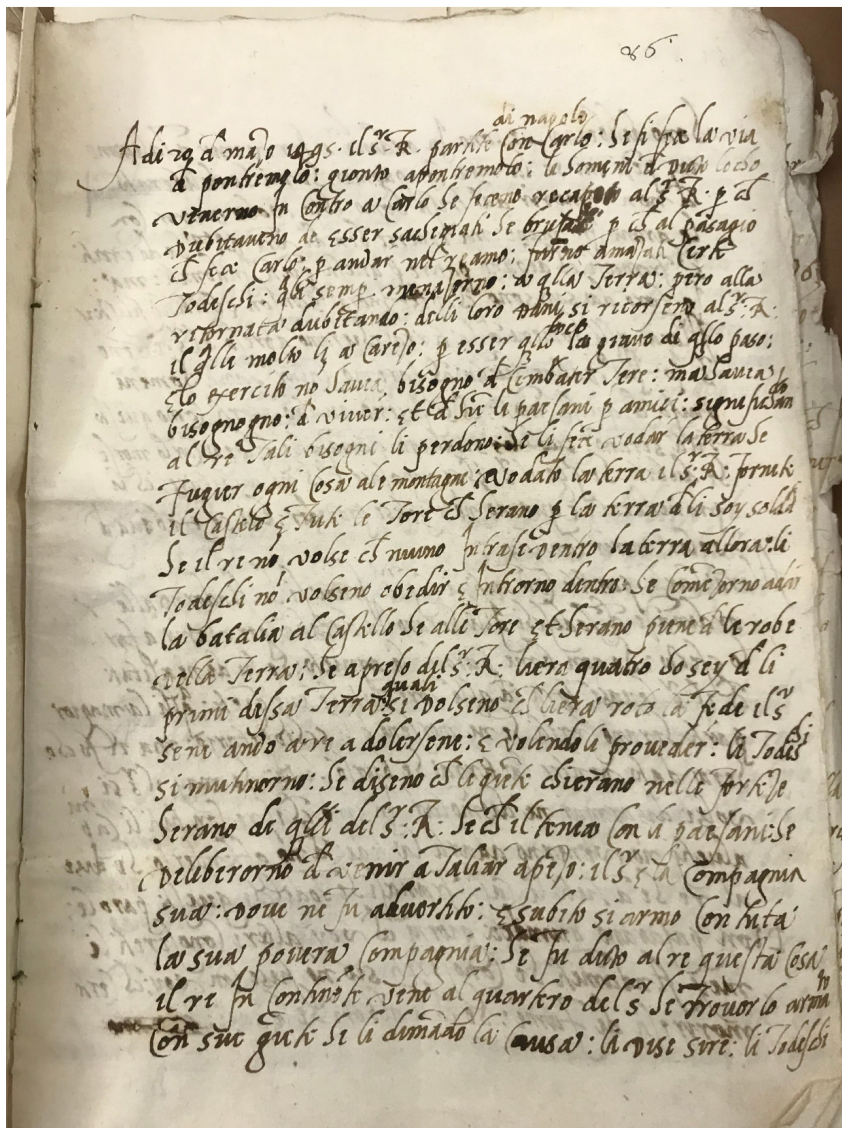 86
di napole
Adi 29 d marzo 1495. il Sr. R. partite con Carlo: he si fece la via
d pontremolo: gionto a pontremolo: le homeni d dicto locho
venerno in contro a Carlo he feceno recapito al Sr. R. p ch
dubitaveno de esser sachegiati he brusati p ch al pasagio
ch fece Carlo p andar nel reamo: furno amazati certi
Todeschi: semp. a qlla Terra: pero alla
ritornata dubitando: delli loro dani si ricorseno al Sr. R:
il qlle molto li a carezo: p esser qllo loco la giave di qllo paso:
e lo exercito no havia bisogno d combater Tere: ma havia
bisognogno: d viver: et d li paesani p amici:
al re Tali bisogni li perdono: he li fece vodar la terra he
Fuger ogni cosa a le montagni: vodato la terra il Sr. R. fornite
il castelo e tute le Tore ch herano p la terra d li soy solda
he il re no volse ch niuno intrase dentro la terra allora: li
Todeschi no volseno obedir e introrno dentro: he comezorno a dar
la batalia al castello he alle Tore et herano piene d le robe
della Terra: he apreso del Sr. R. liera quatro ho sey d li
primi dissa Terra: quali si dolseno ch liera roto la fede il Sr
sene ando a re a dolersene: e volendoli proveder: li Todes
chi
si mutinorno: he diseno ch le gete chierano nelle forteze
herano de qlli del Sr. R: he ch il teneva con li paesani: he
deliberorno d venir a Taliar a pezo: il Sr e la compagnia
sua: dove ne fu advertito: e subito si armo con tuta
la sua povera compagnia: he fu dicto al re questa cosa
il re in continete vene al quartero del Sr he trovorlo arma
to
con sue gete he li dimado la causa: li dise sire: li Todeschi